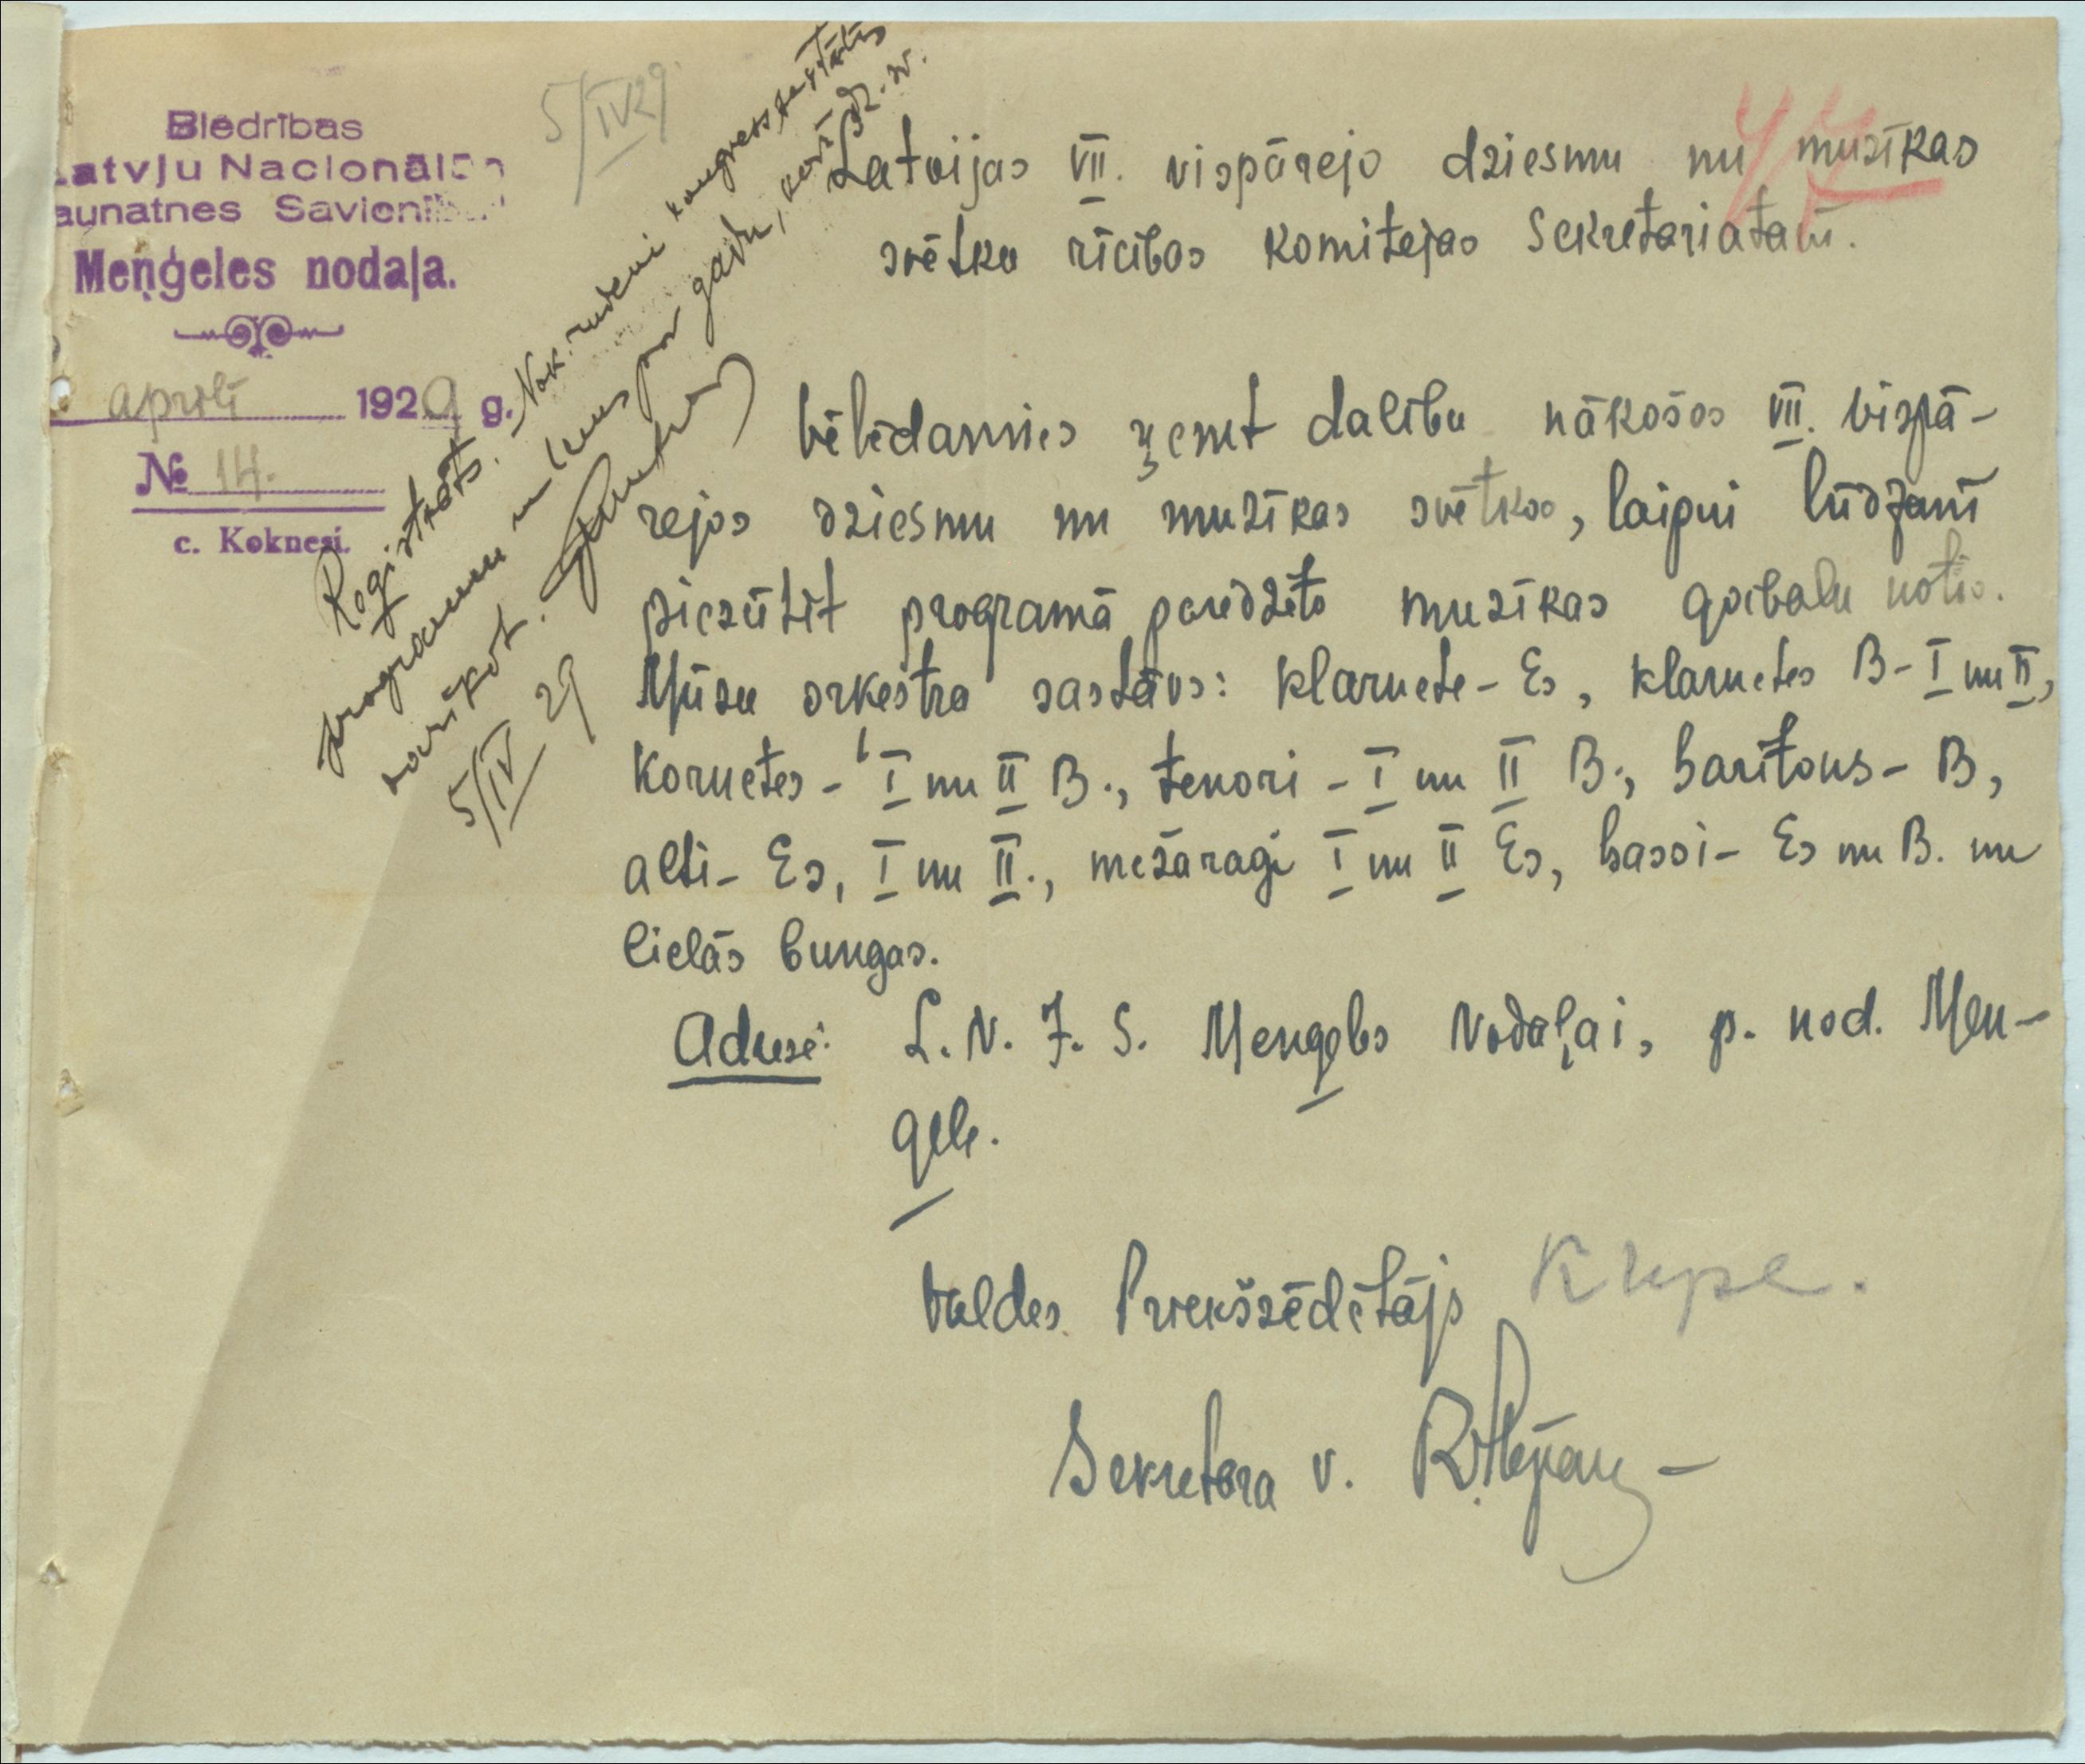 Biedrības
Latvju Nacionālās
Jaunatnes Savienības
Meņģeles nodaļa.
aprilī 1929 g.
№ 14.
c. Koknesi.
5/IV 29.
Reģistrēts. Nāk. rudenī kongress sastādīs
programmu un lems par gadu, kad dz. sv.
sarīkot.
5/IV 29
Latvijas VII. vispārejo dziesmu un muzīkas
svētku rīcības komitejas Sekretariatam.
Vēlēdamies ņemt dalību nākošos VII. vispā-
rejos dziesmu un muzīkas svētkos, laipni lūdzam
piesūtīt programā paredzēto muzīkas gabalu notis.
Mūsu orkestra sastāvs: klarnete - Es, klarnetes B - I un II,
kornetes - I un II B., tenori - I un II B., baritons - B,
alti - Es, I un II., mežaragi I un II Es, bassi - Es un B. un
lielās bungas.
Adrese: L. N. J. S. Mengeles Nodaļai, p. nod. Men-
gele.
Valdes Priekšsēdētājs Krupe.
Sekretara v.